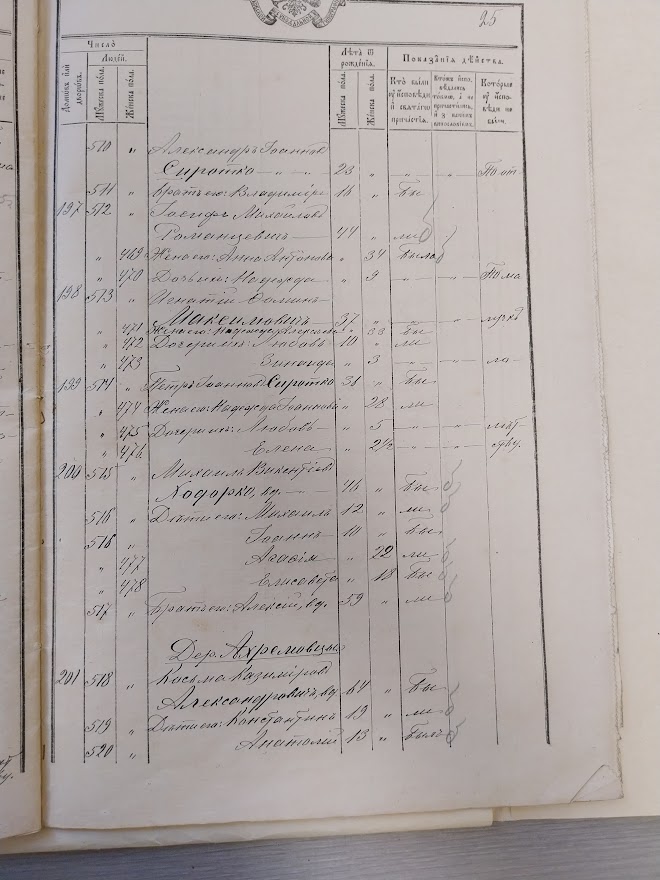 25
Число
Людей.
Лѣта ѿ рожденїя.
Показанїя дѣйства.
Домовъ или дворовъ.
Мꙋжеска пола.
Женска пола.
Мꙋжеска пола.
Женска пола.
Кто были ꙋ исповѣди и свѧтагѡ причастїѧ.
Которые ꙋ исповѣди не были.
510 " Александръ Іоанновъ
Сиротко — " — 23 " " " По от
511 " Братъ его: Владиміръ 16 " бы
197 512 " Іосифъ Михайловъ
Романцевичъ 44 " ли
" 469 Жена его: Анна Антонова " 34 были
" 470 Дочь ихъ: Надежда " 9 " " По ма
198 513 " Игнатій
Максимовичъ 37 " " "
" 471 Жена его: Надежда " 33 бы
" 472 Дочери ихъ: Любовь 10 " ли
" 473 Зинаида " 3 — " — ло-
199 514 " Петръ Іоанновъ Сиротко 31 " бы
" 474 Жена его: Надежда Іоаннова " 28 ли
" 475 Дочери ихъ: Любовь " 5 — " — лѣт-
" 476 Елена " 2½ — " — ству.
200 515 " Михаилъ Викентіевъ
Ходорко, вд. — 46 " бы
516 " Дѣти его: Михаилъ 12 " ли
516 " Іоаннъ 10 " бы
" 477 22 ли
" 478 Елисавета " 18 бы
517 " Братъ его: Алексій, вд. 59 " ли
Дер. Ахремовцы
201 518 " Косьма Казиміровъ
Александровичъ, вд. 64 " бы
519 " Дѣти его: Константинъ 19 " ли
520 " Анатолій 13 " были